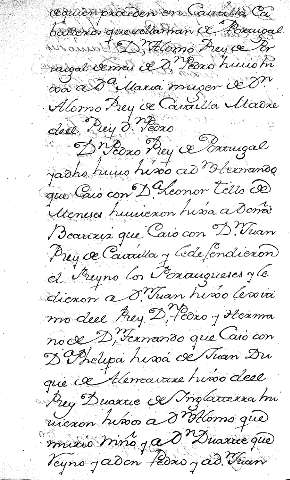 de quien proceden en Castilla Ca
balleros que se llaman de Portugal
Dn Alonso Rey de Por
tugal demas de Dn Pedro huuo hi
xa a Da Maria muger de Dn
Alonso Rey de Castilla Madre
de el Rey Dn Pedro
Dn Pedro Rey de Portugal
ya dho huuo hixo a Dn Hernando
que Casò con Da Leonor Tello de
Meneses huuieron hixa a doña
Beatriz que Casò con Dn Juan
Rey de Castilla y le defendieron
el Reyno los Portugueses y le
dieron a Dn Juan hixo lexiti
mo de el Rey Dn Pedro y Herma
no de Dn Fernando que Casò con
Da Phelipa hixa de Juan Du
que de Alencastre hixo de el
Rey Duarte de Inglatarra hu
uieron hixos a Dn Alonso que
murio niño y a Dn Duarte que
Reyno y a don Pedro y a d. Juan